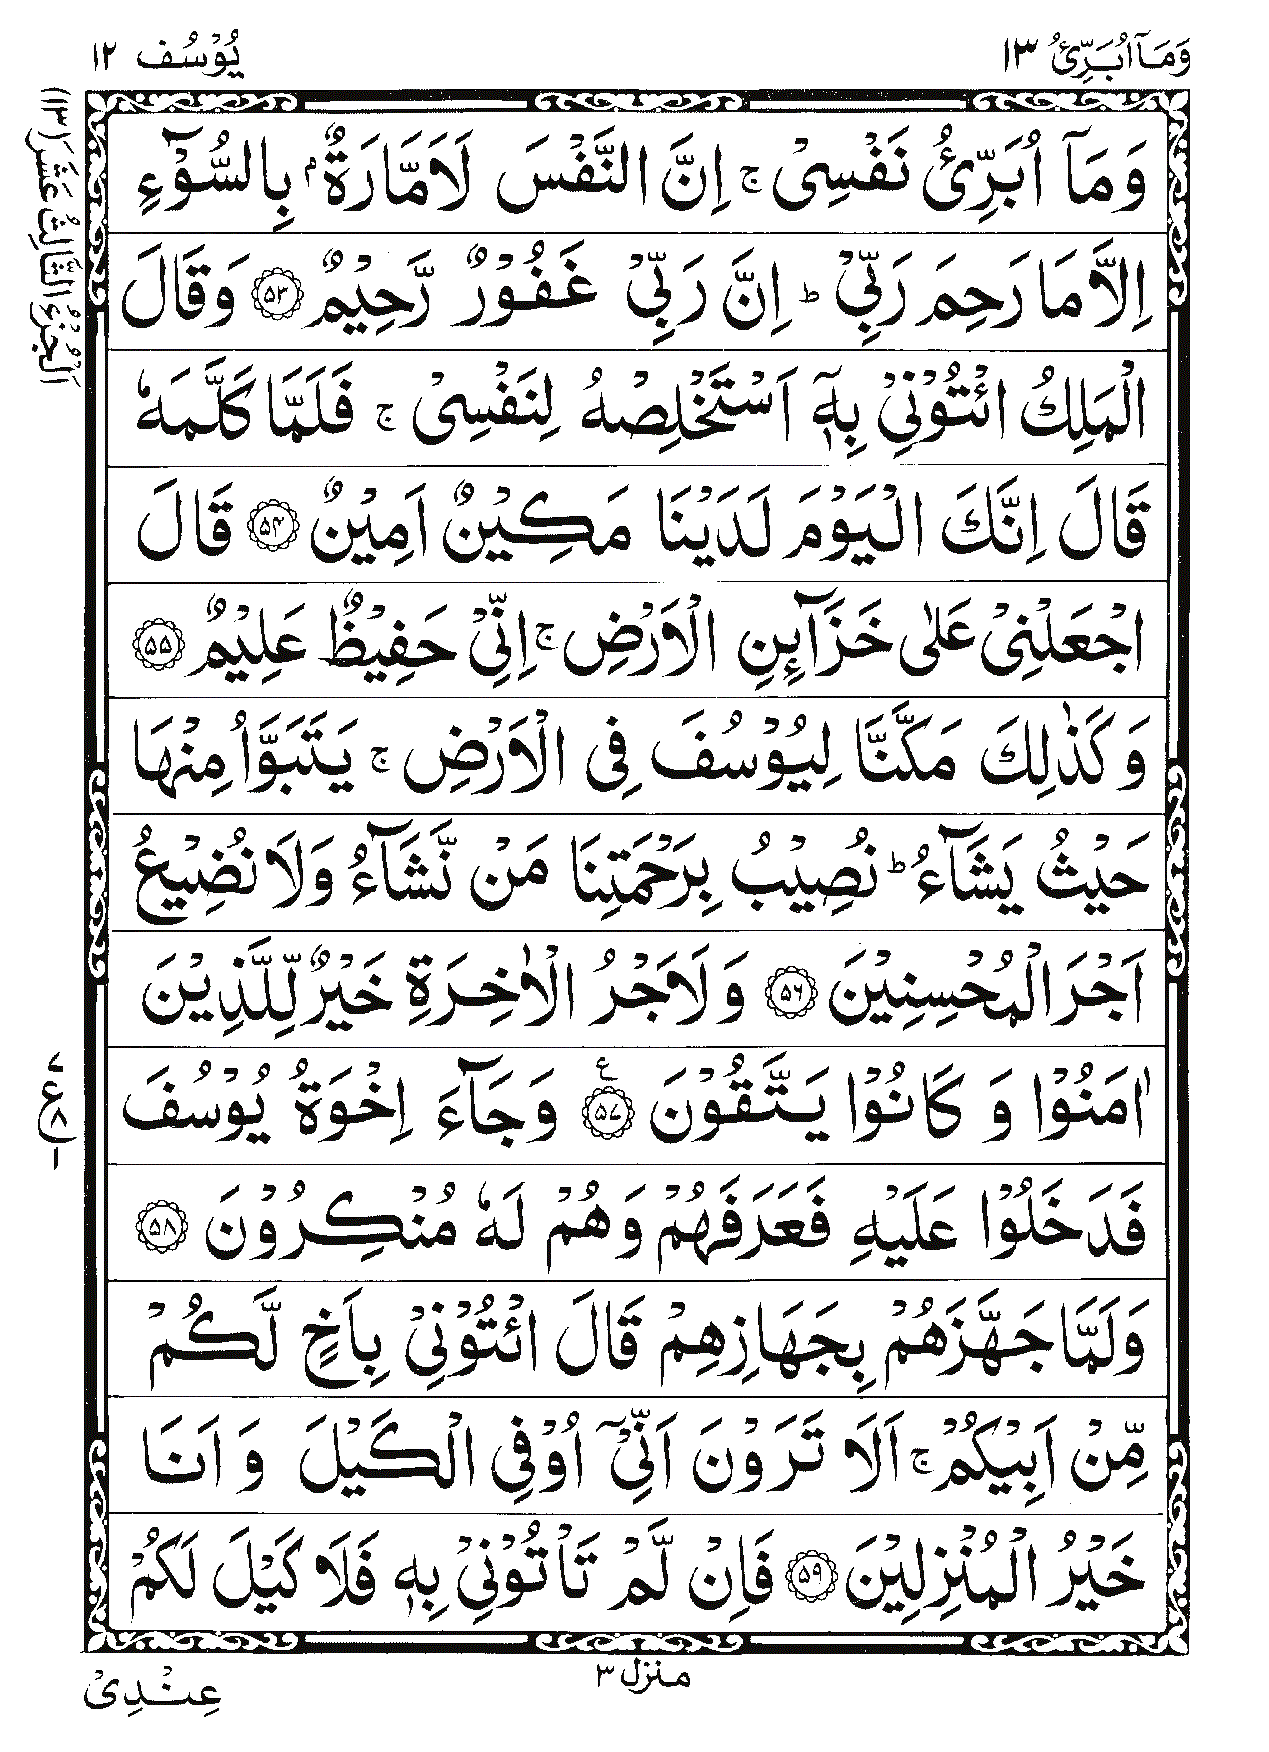 وَمَآ اُبَرِّئُ ١٣
يُوْسُف ١٢
اَلْجُزْءُ الثَّالِثُ عَشَرَ (١٣)
وَمَآ اُبَرِّئُ نَفْسِیْ ۚ اِنَّ النَّفْسَ لَاَمَّارَةٌۢ بِالسُّوْٓءِ
اِلَّا مَا رَحِمَ رَبِّیْ ؕ اِنَّ رَبِّیْ غَفُوْرٌ رَّحِیْمٌ ﴿۵۳﴾ وَقَالَ
الْمَلِكُ ائْتُوْنِیْ بِهٖۤ اَسْتَخْلِصْهُ لِنَفْسِیْ ۚ فَلَمَّا كَلَّمَهٗ
قَالَ اِنَّكَ الْیَوْمَ لَدَیْنَا مَكِیْنٌ اَمِیْنٌ ﴿۵۴﴾ قَالَ
اجْعَلْنِیْ عَلٰی خَزَآىِٕنِ الْاَرْضِ ۚ اِنِّیْ حَفِیْظٌ عَلِیْمٌ ﴿۵۵﴾
وَكَذٰلِكَ مَكَّنَّا لِیُوْسُفَ فِی الْاَرْضِ ۚ یَتَبَوَّاُ مِنْهَا
حَیْثُ یَشَآءُ ؕ نُصِیْبُ بِرَحْمَتِنَا مَنْ نَّشَآءُ وَلَا نُضِیْعُ
اَجْرَ الْمُحْسِنِیْنَ ﴿۵۶﴾ وَلَاَجْرُ الْاٰخِرَةِ خَیْرٌ لِّلَّذِیْنَ
اٰمَنُوْا وَ كَانُوْا یَتَّقُوْنَ ﴿۵۷﴾ ع وَجَآءَ اِخْوَةُ یُوْسُفَ
٧ ع ٨ ١
فَدَخَلُوْا عَلَیْهِ فَعَرَفَهُمْ وَهُمْ لَهٗ مُنْكِرُوْنَ ﴿۵۸﴾
وَلَمَّا جَهَّزَهُمْ بِجَهَازِهِمْ قَالَ ائْتُوْنِیْ بِاَخٍ لَّكُمْ
مِّنْ اَبِیْكُمْ ۚ اَلَا تَرَوْنَ اَنِّیْۤ اُوْفِی الْكَیْلَ وَ اَنَا
خَیْرُ الْمُنْزِلِیْنَ ﴿۵۹﴾ فَاِنْ لَّمْ تَاْتُوْنِیْ بِهٖ فَلَا كَیْلَ لَكُمْ
منزل ٣
عِنْدِیْ